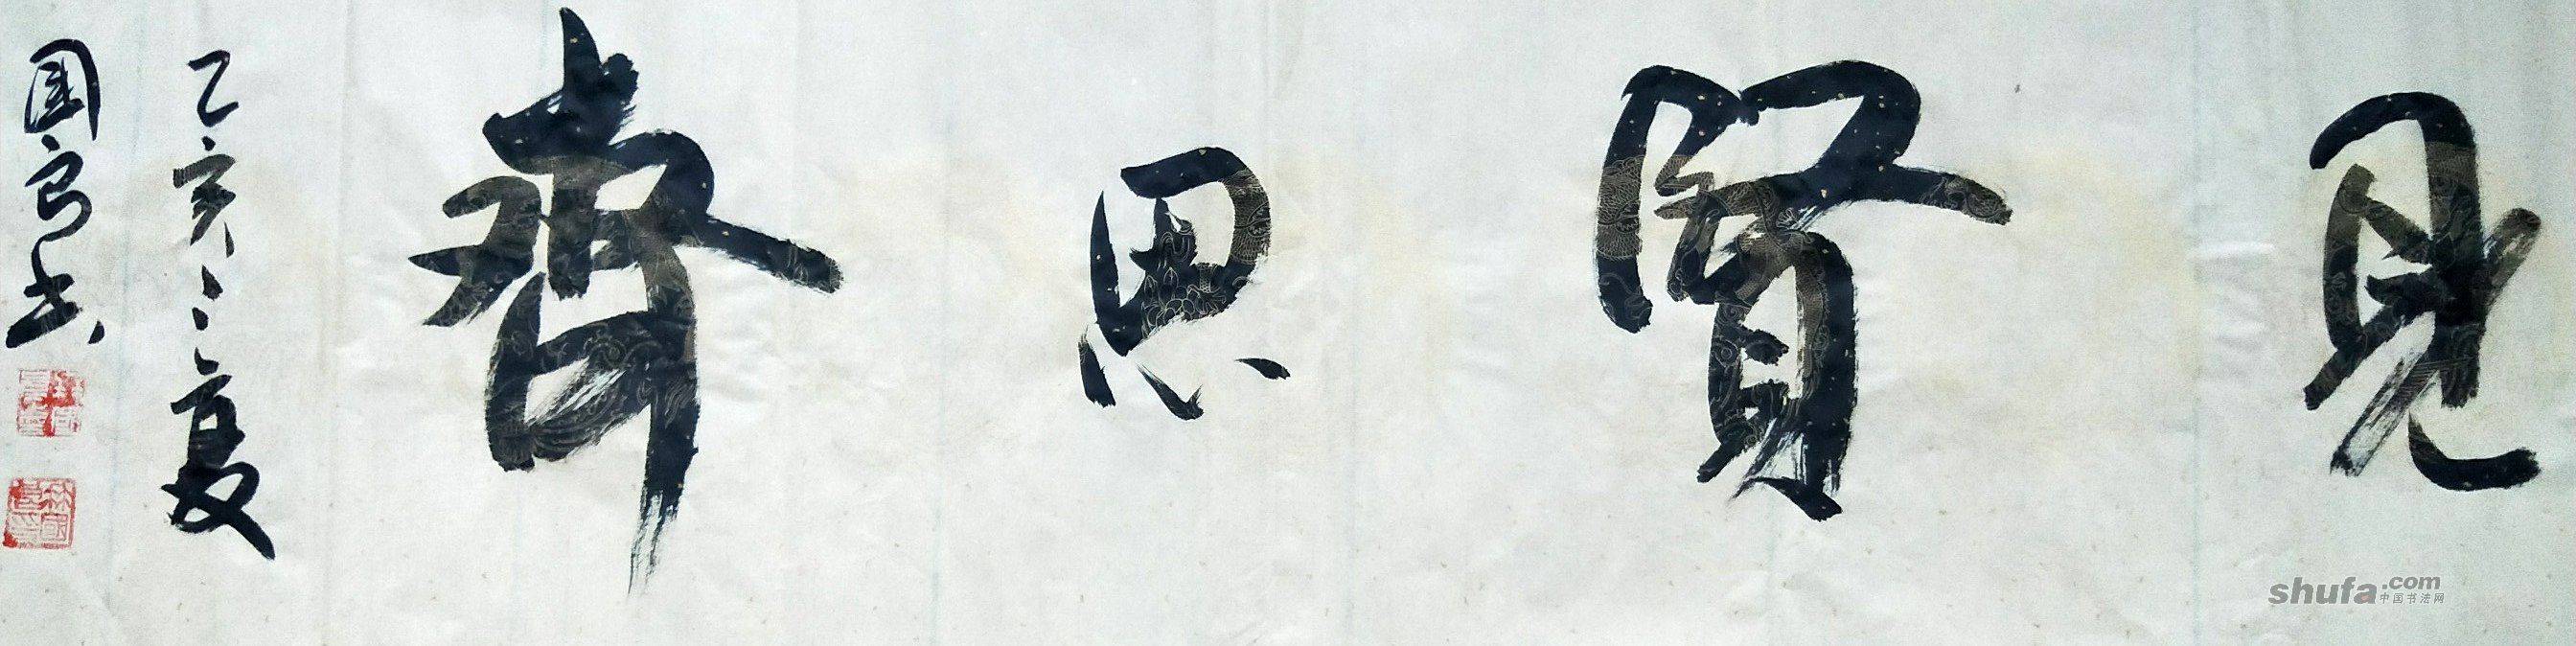 見賢思齊
乙亥之夏
国良书
shufa.com
中国书法网